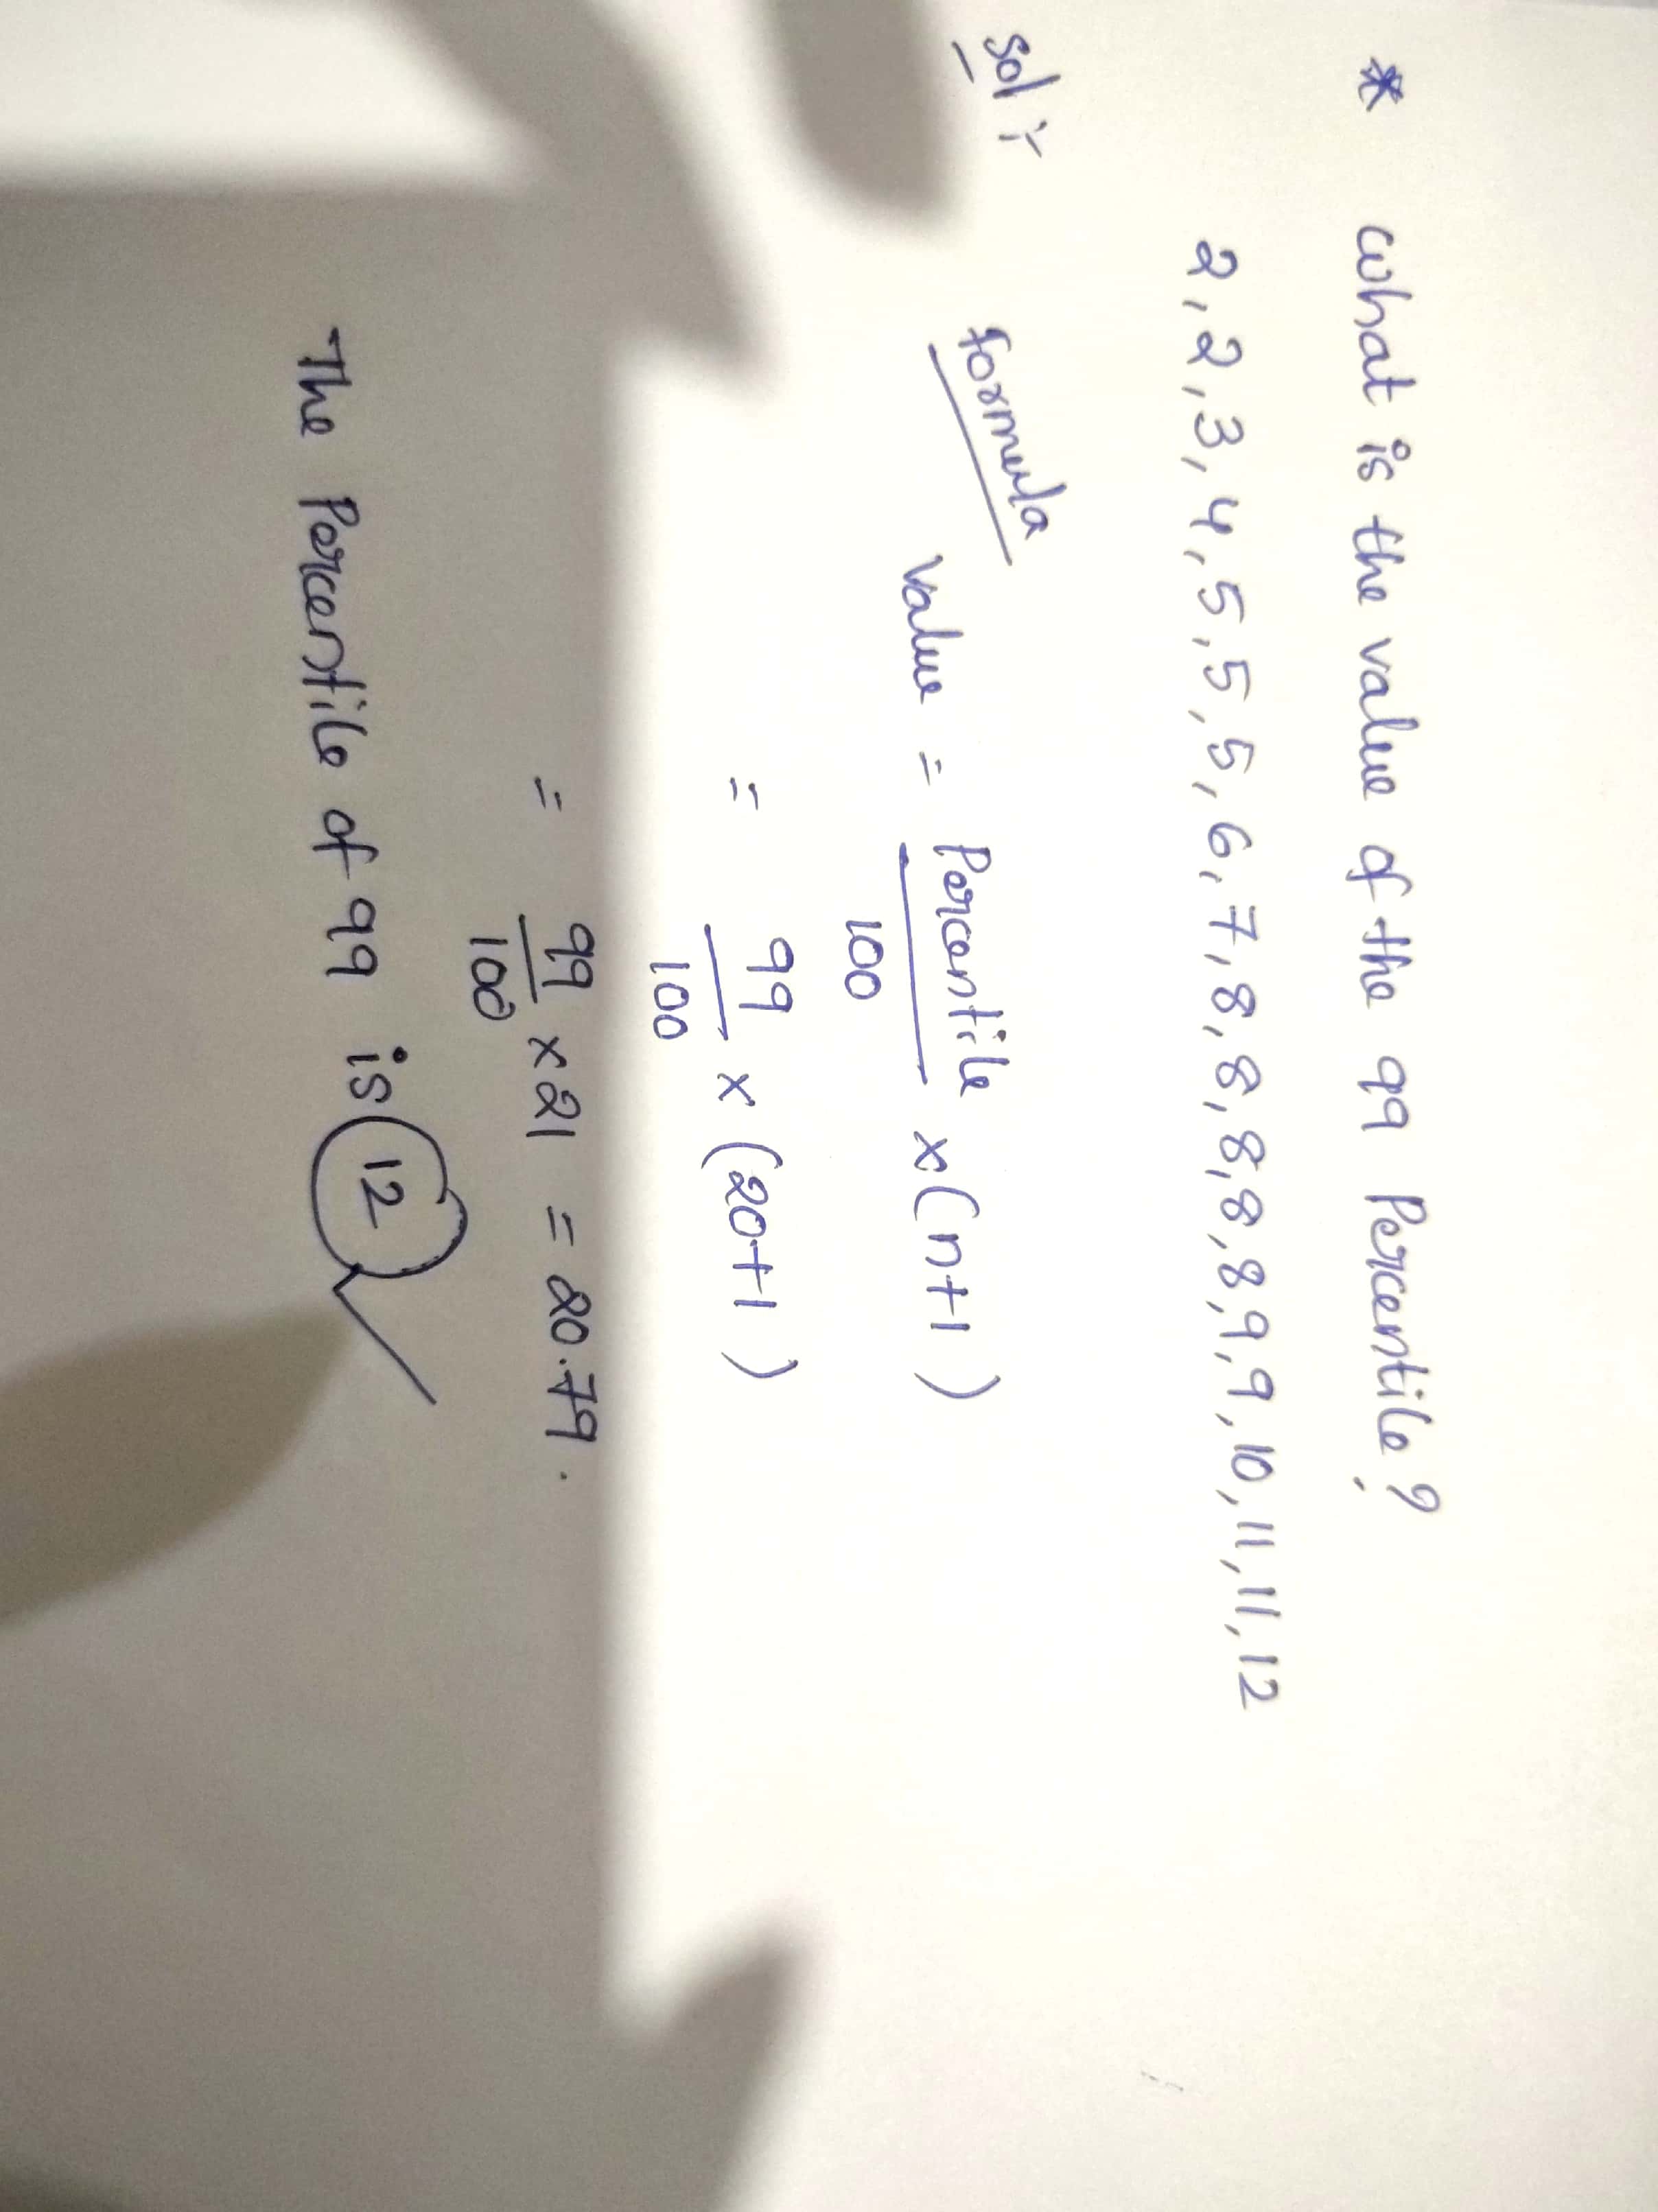 * What is the value of the 99 Percentile?
2, 2, 3, 4, 5, 5, 5, 6, 7, 8, 8, 8, 8, 8, 9, 9, 10, 11, 11, 12
Sol :-
Formula
Value = Percentile / 100 x (n+1)
= 99 / 100 x (20+1)
= 99 / 100 x 21 = 20.79.
The Percentile of 99 is 12